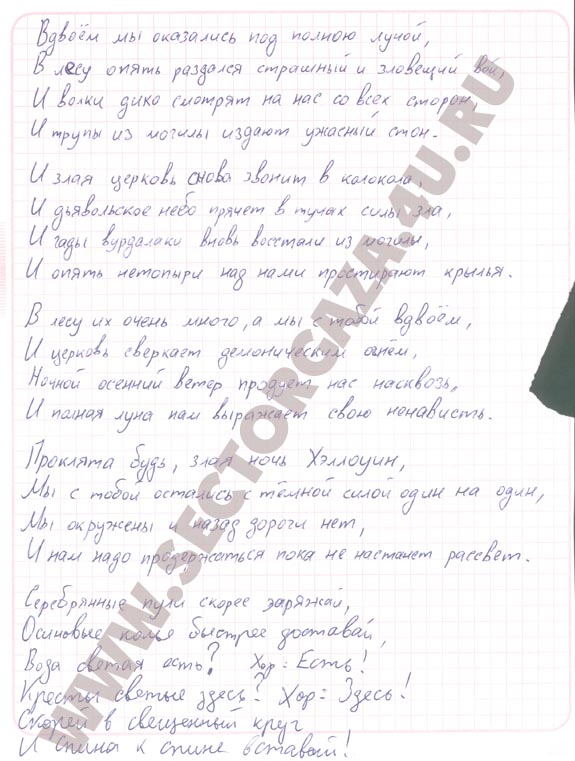 Вдвоём мы оказались под полною луной,
В лесу опять раздался страшный и зловещий вой,
И волки дико смотрят на нас со всех сторон,
И трупы из могилы издают ужасный стон.
И злая церковь снова звонит в колокола,
И дьявольское небо прячет в тучах силы зла,
И гады вурдалаки вновь восстали из могилы,
И опять нетопыри над нами простирают крылья.
В лесу их очень много, а мы с тобой вдвоём,
И церковь сверкает демоническим огнём,
Ночной осенний ветер продует нас насквозь,
И полная луна нам выражает свою ненависть.
Проклята будь, злая ночь Хэллоуин,
Мы с тобой остались с тёмной силой один на один,
Мы окружены и назад дороги нет,
И нам надо продержаться пока не настанет рассвет.
Серебрянные пули скорее заряжай,
Осиновые колья быстрее доставай,
Вода святая есть? Хор: Есть!
Кресты святые здесь? Хор: Здесь!
Скорей в свещенный круг
И спина к спине вставай!
WWW.SECTORGAZA.4U.RU